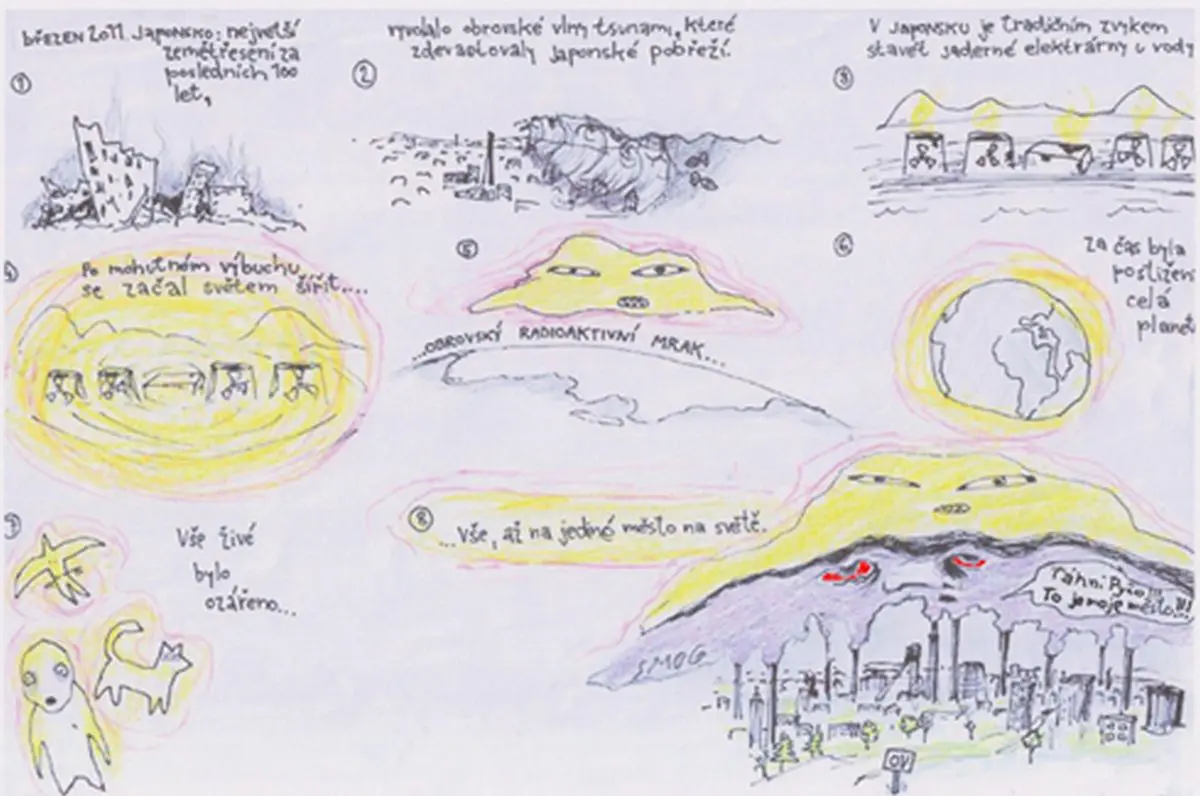 ①
BŘEZEN 2011 JAPONSKO: největší
zemětřesení za
posledních 100
let,
②
vyvolalo obrovské vlny tsunami, které
zdevastovaly japonské pobřeží.
③
V JAPONSKU je tradičním zvykem
stavět jaderné elektrárny u vody
4
Po mohutném výbuchu
se začal světem šířit....
⑤
...OBROVSKÝ RADIOAKTIVNÍ MRAK...
⑥
Za čas byla
postižena
celá
planet
7
Vše živé
bylo
ozářeno...
⑧
...Vše, až na jedné město na světě.
Táhni
To je moje město!!!
SMOG
OV